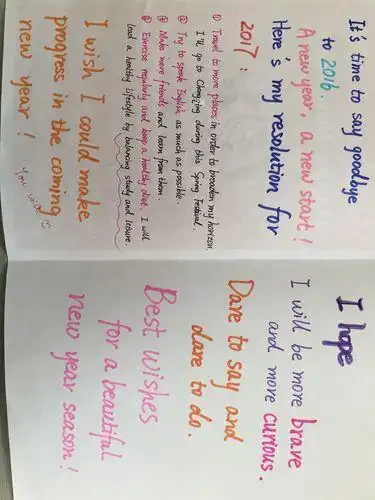 It's time to say goodbye
to 2016
A new year, a new start!
Here's my resolution for
2017:
① Travel to more places in order to broaden my horizon.
I'll go to Chongqing during this Spring Festival.
② Try to speak English as much as possible.
③ Make more friends and learn from them.
④ Exercise regularly and keep a healthy diet. I will
lead a healthy lifestyle by balancing study and leisure.
I wish I could make
progress in the coming
new year!
You will
I hope
I will be more brave
and more curious.
Dare to say and
dare to do.
Best wishes
for a beautiful
new year season!